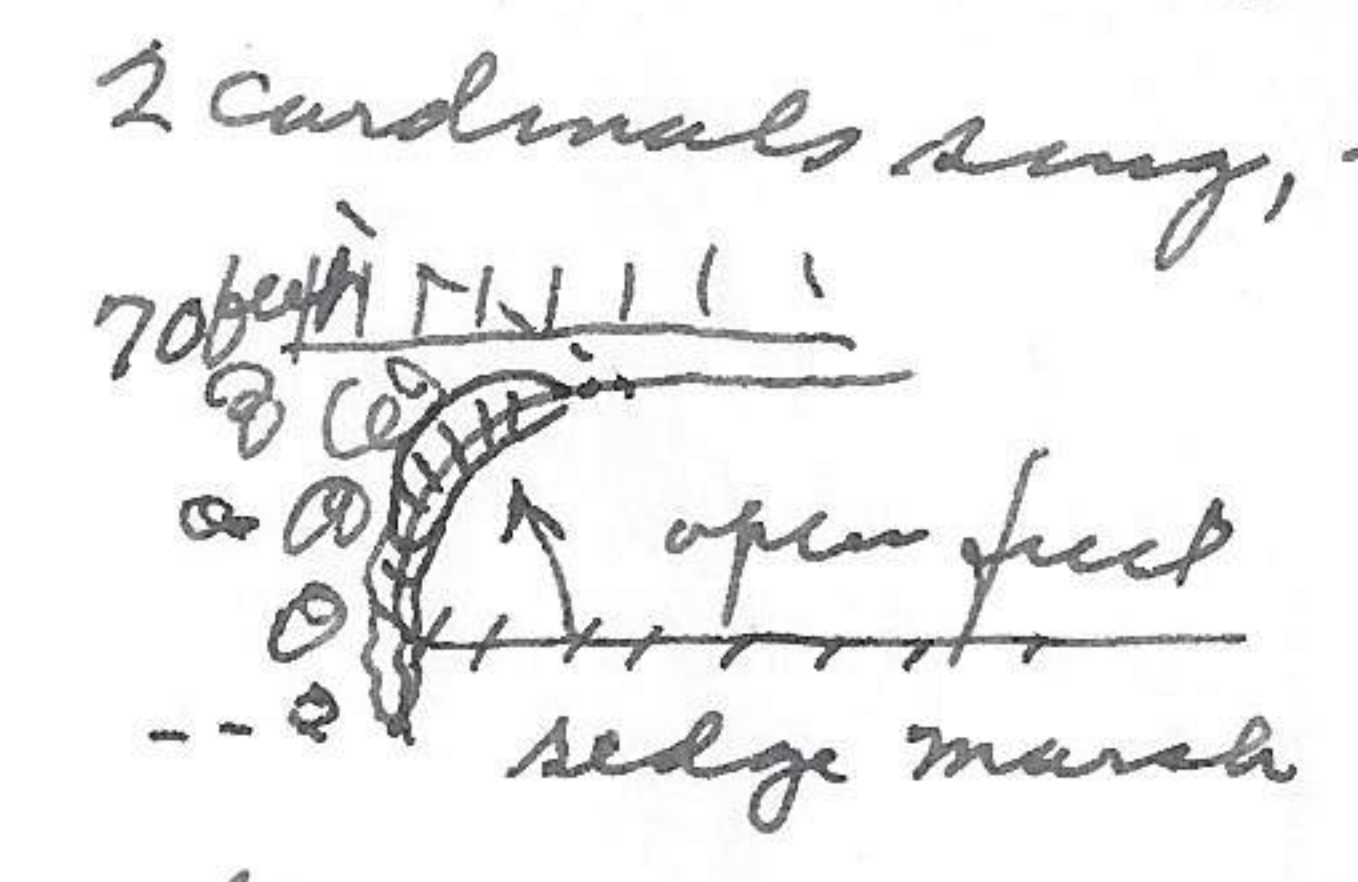 2 cardinals sing,
70 feet
open field
sedge marsh